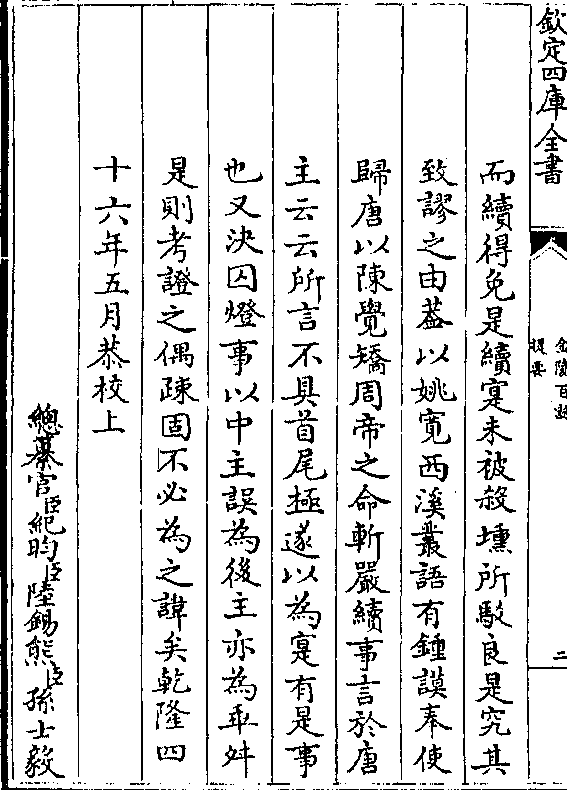 欽定四庫全書
金陵百詠
提要
二
而續得免是續寔未被殺壎所駮良是究其
致謬之由葢以姚寛西溪叢語有鍾謨奉使
歸唐以陳覺矯周帝之命斬嚴續事言於唐
主云云所言不具首尾極遂以為寔有是事
也又決囚燈事以中主誤為後主亦為乖舛
是則考證之偶疎固不必為之諱矣乾隆四
十六年五月恭校上
總纂官臣紀昀臣陸錫熊臣孫士毅